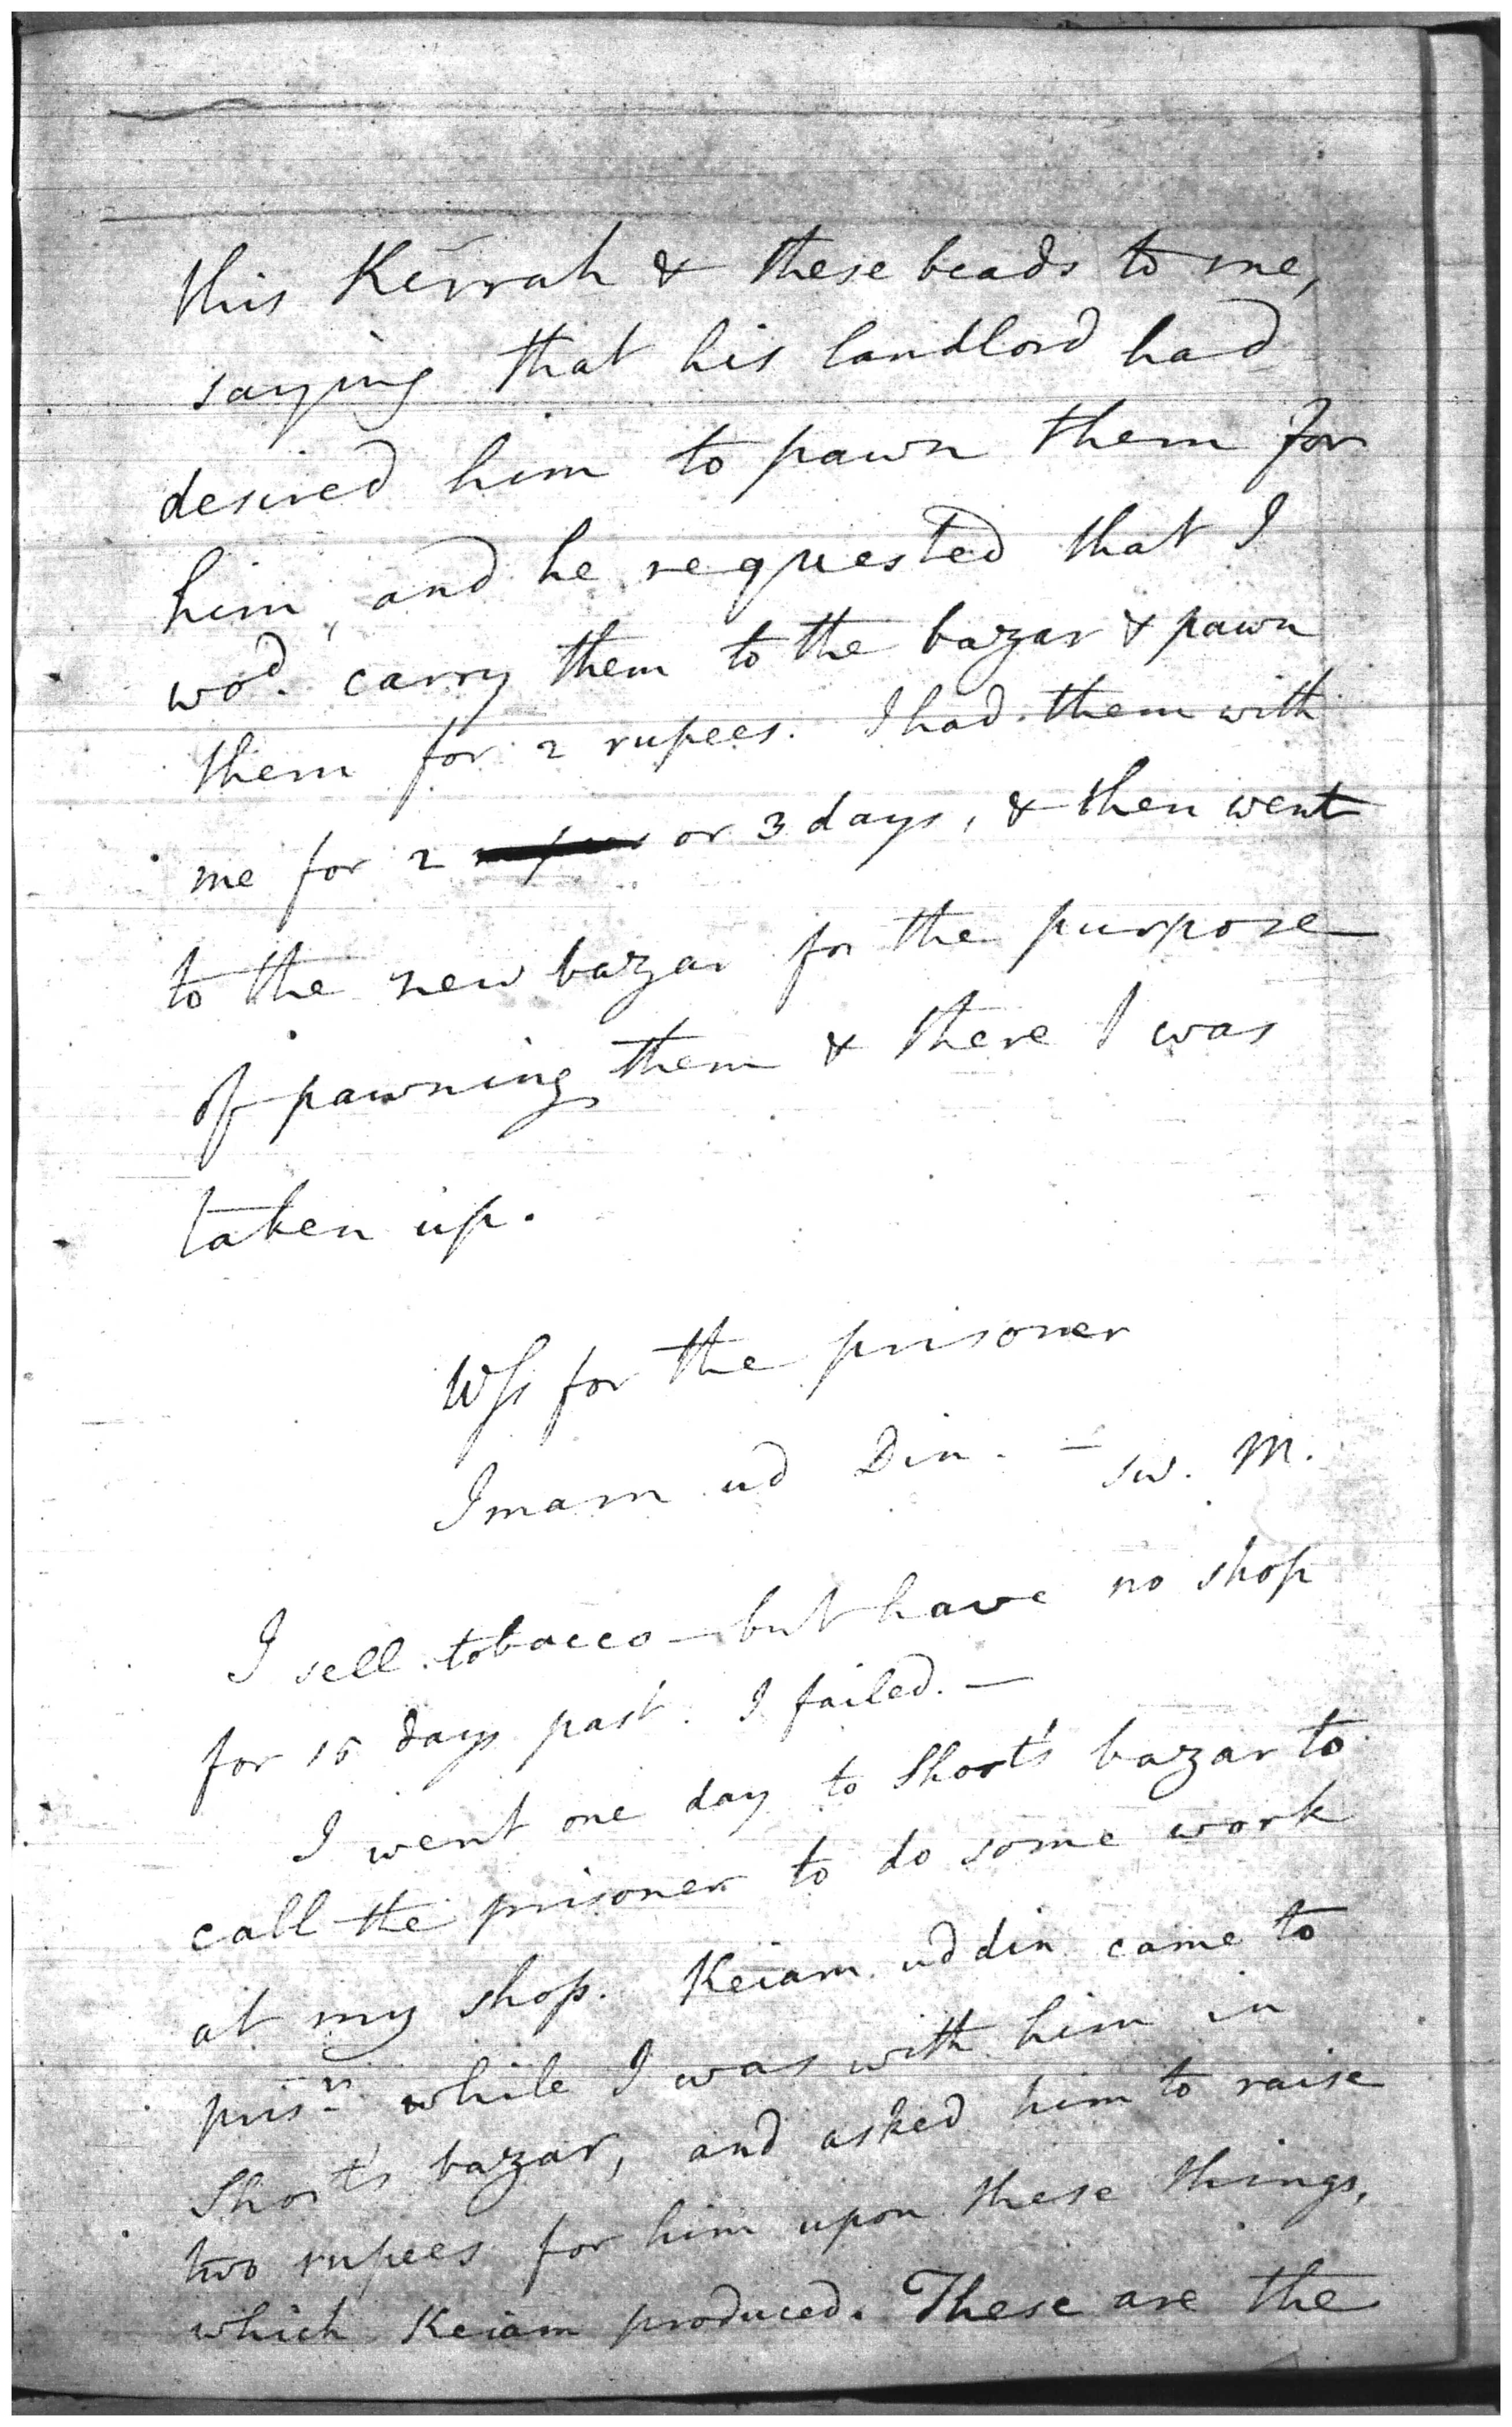 this Kerrah & these beads to me,
saying that his landlord had
desired him to pawn them for
him, and he requested that I
wod. carry them to the bazar & pawn
them for 2 rupees. I had them with
me for 2 or 3 days, & then went
to the new bazar for the purpose
of pawning them & there I was
taken up.
Wss for the prisoner
Imam ud Din. - sw. M.
I sell tobacco - but have no shop
for 15 days past. I failed. -
I went one day to Short's bazar to
call the prisoner to do some work
at my shop. Keiam uddin came to
prisr. while I was with him in
Short's bazar, and asked him to raise
two rupees for him upon these things,
which Keiam produced. These are the